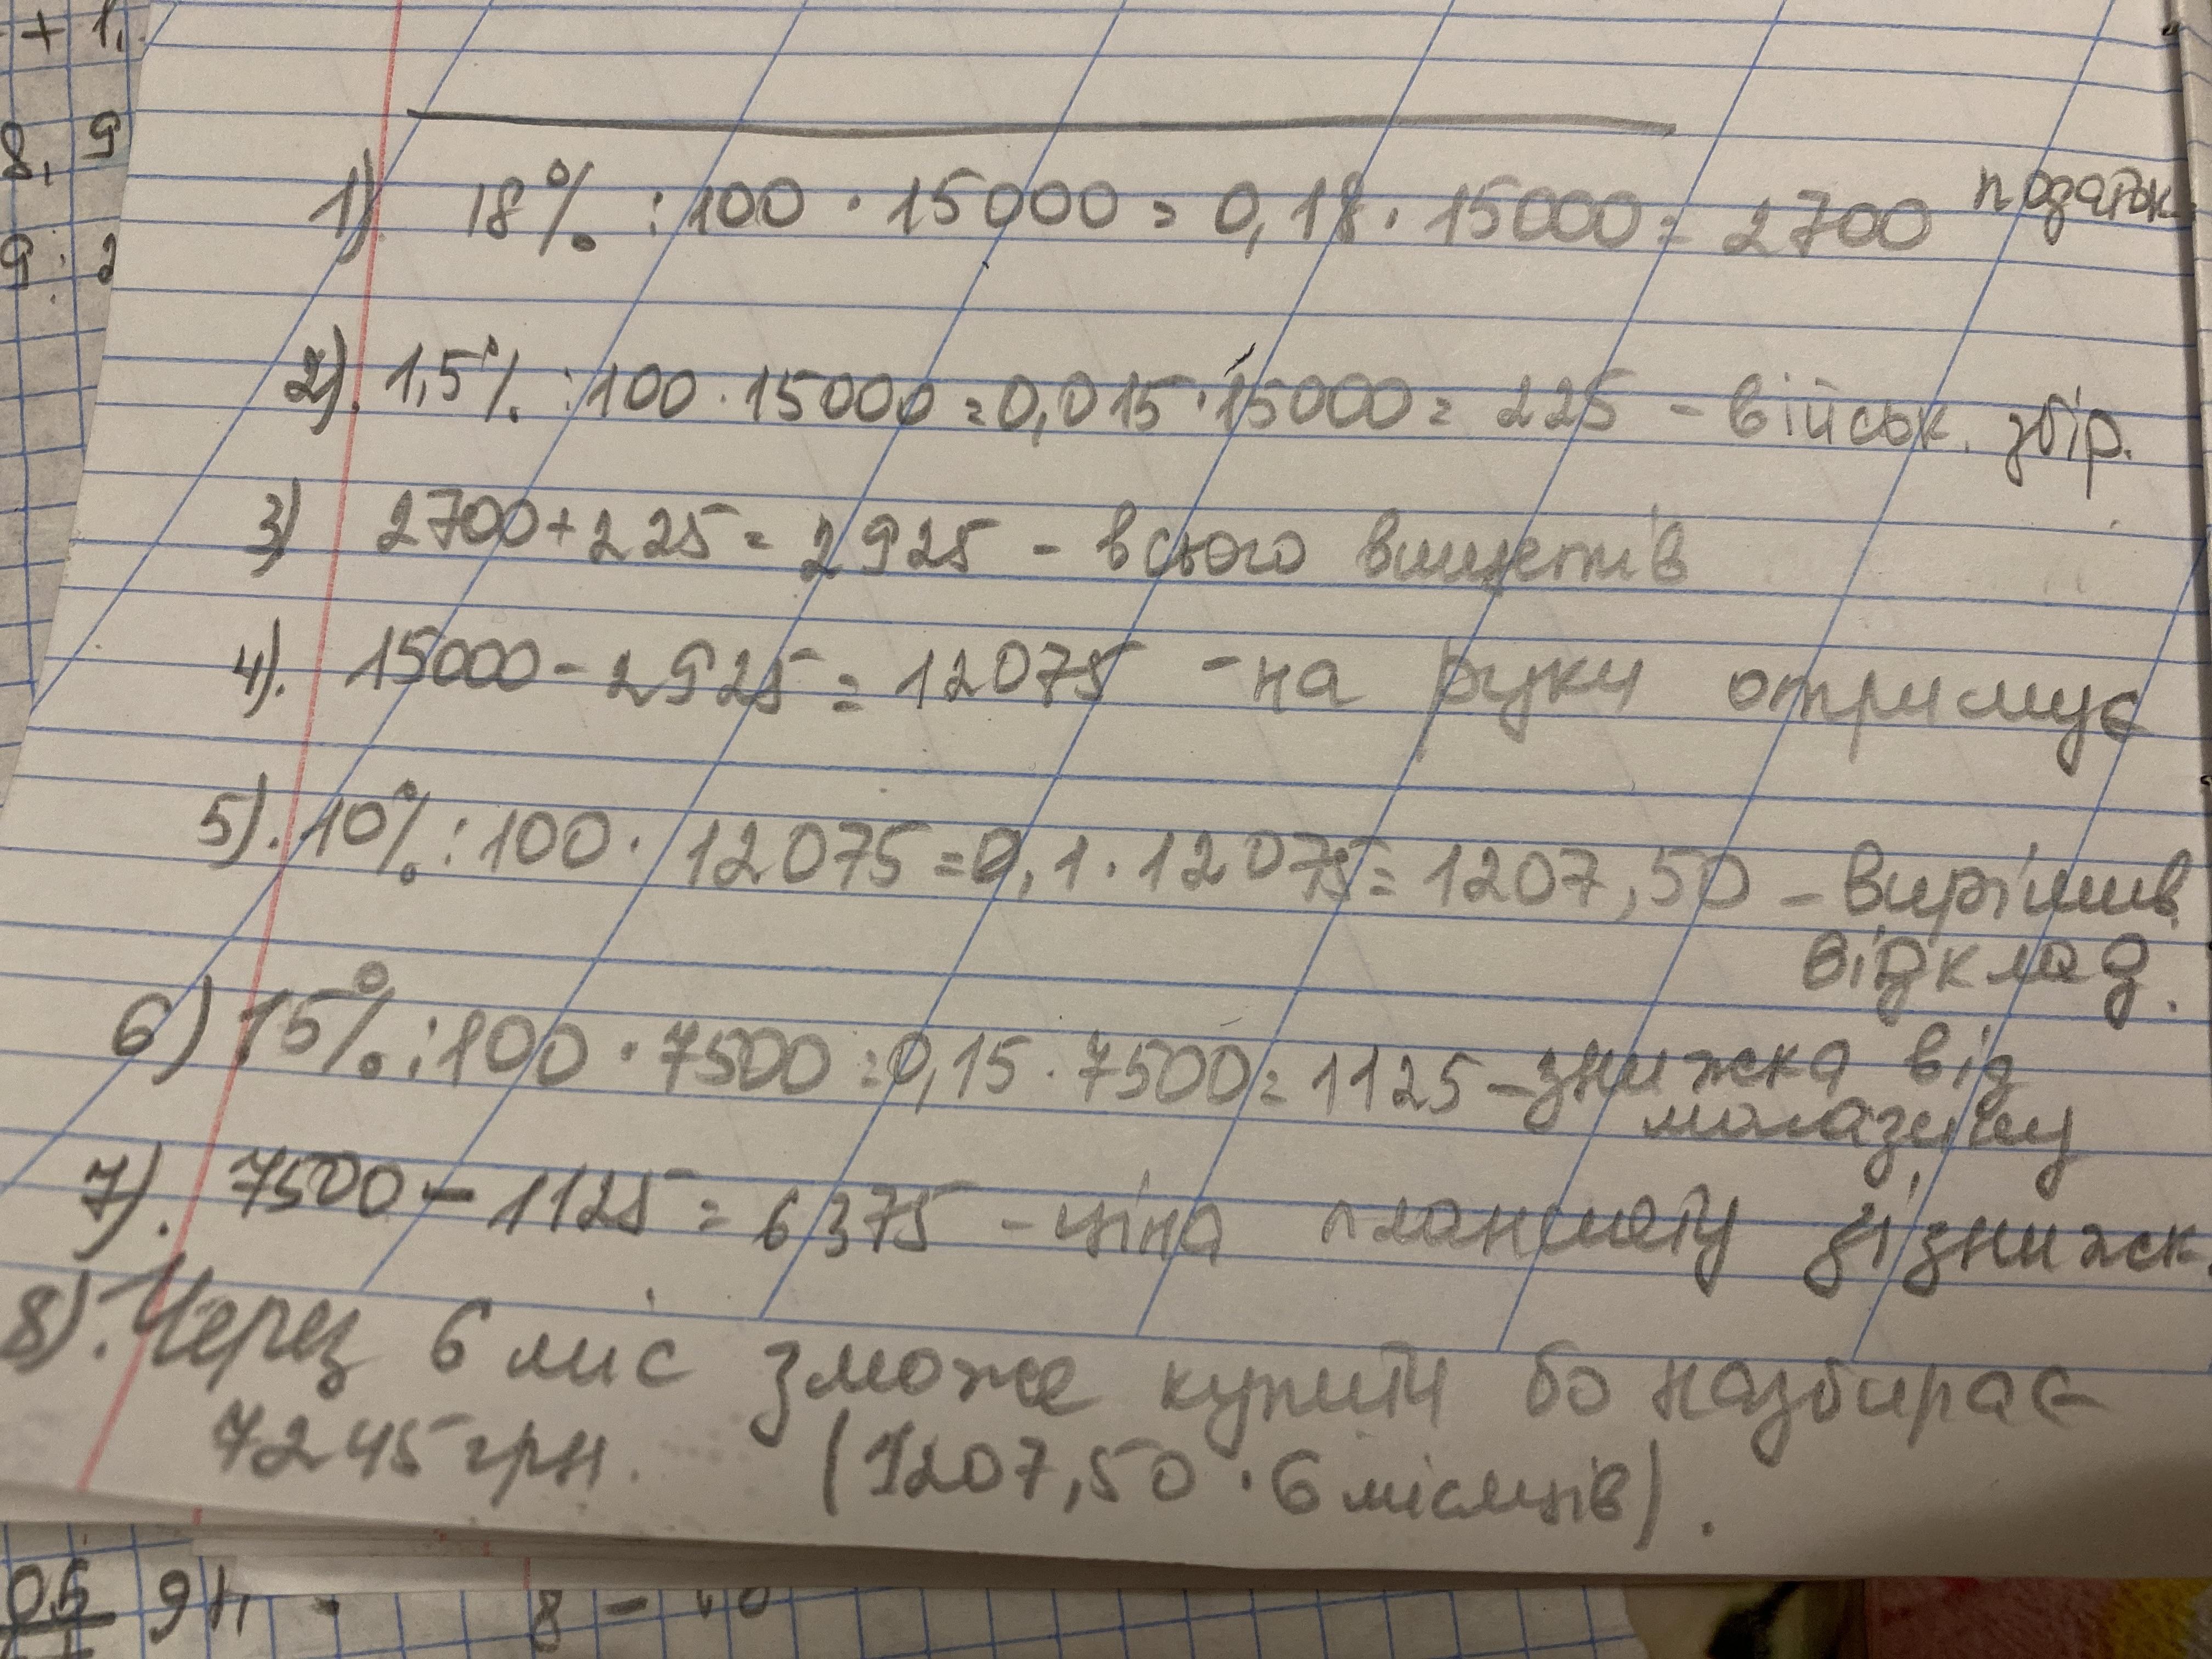 + 1,
8, 9
9 : 2
1) 18% : 100 · 15000 = 0,18 · 15000 = 2700 податок
2). 1,5% : 100 · 15000 = 0,015 · 15000 = 225 - військ. збір.
3) 2700 + 225 = 2925 - всього вищетів
4). 15000 - 2925 = 12075 - на руки отримує
5). 10% : 100 · 12075 = 0,1 · 12075 = 1207,50 - вирішив
відклад.
6) 15% : 100 · 7500 = 0,15 · 7500 = 1125 - знижка від
магазину
7). 7500 - 1125 = 6375 - ціна планшету зі знижк.
8). Через 6 міс зможе купити бо назбирає
7245 грн. (1207,50 · 6 місяців).